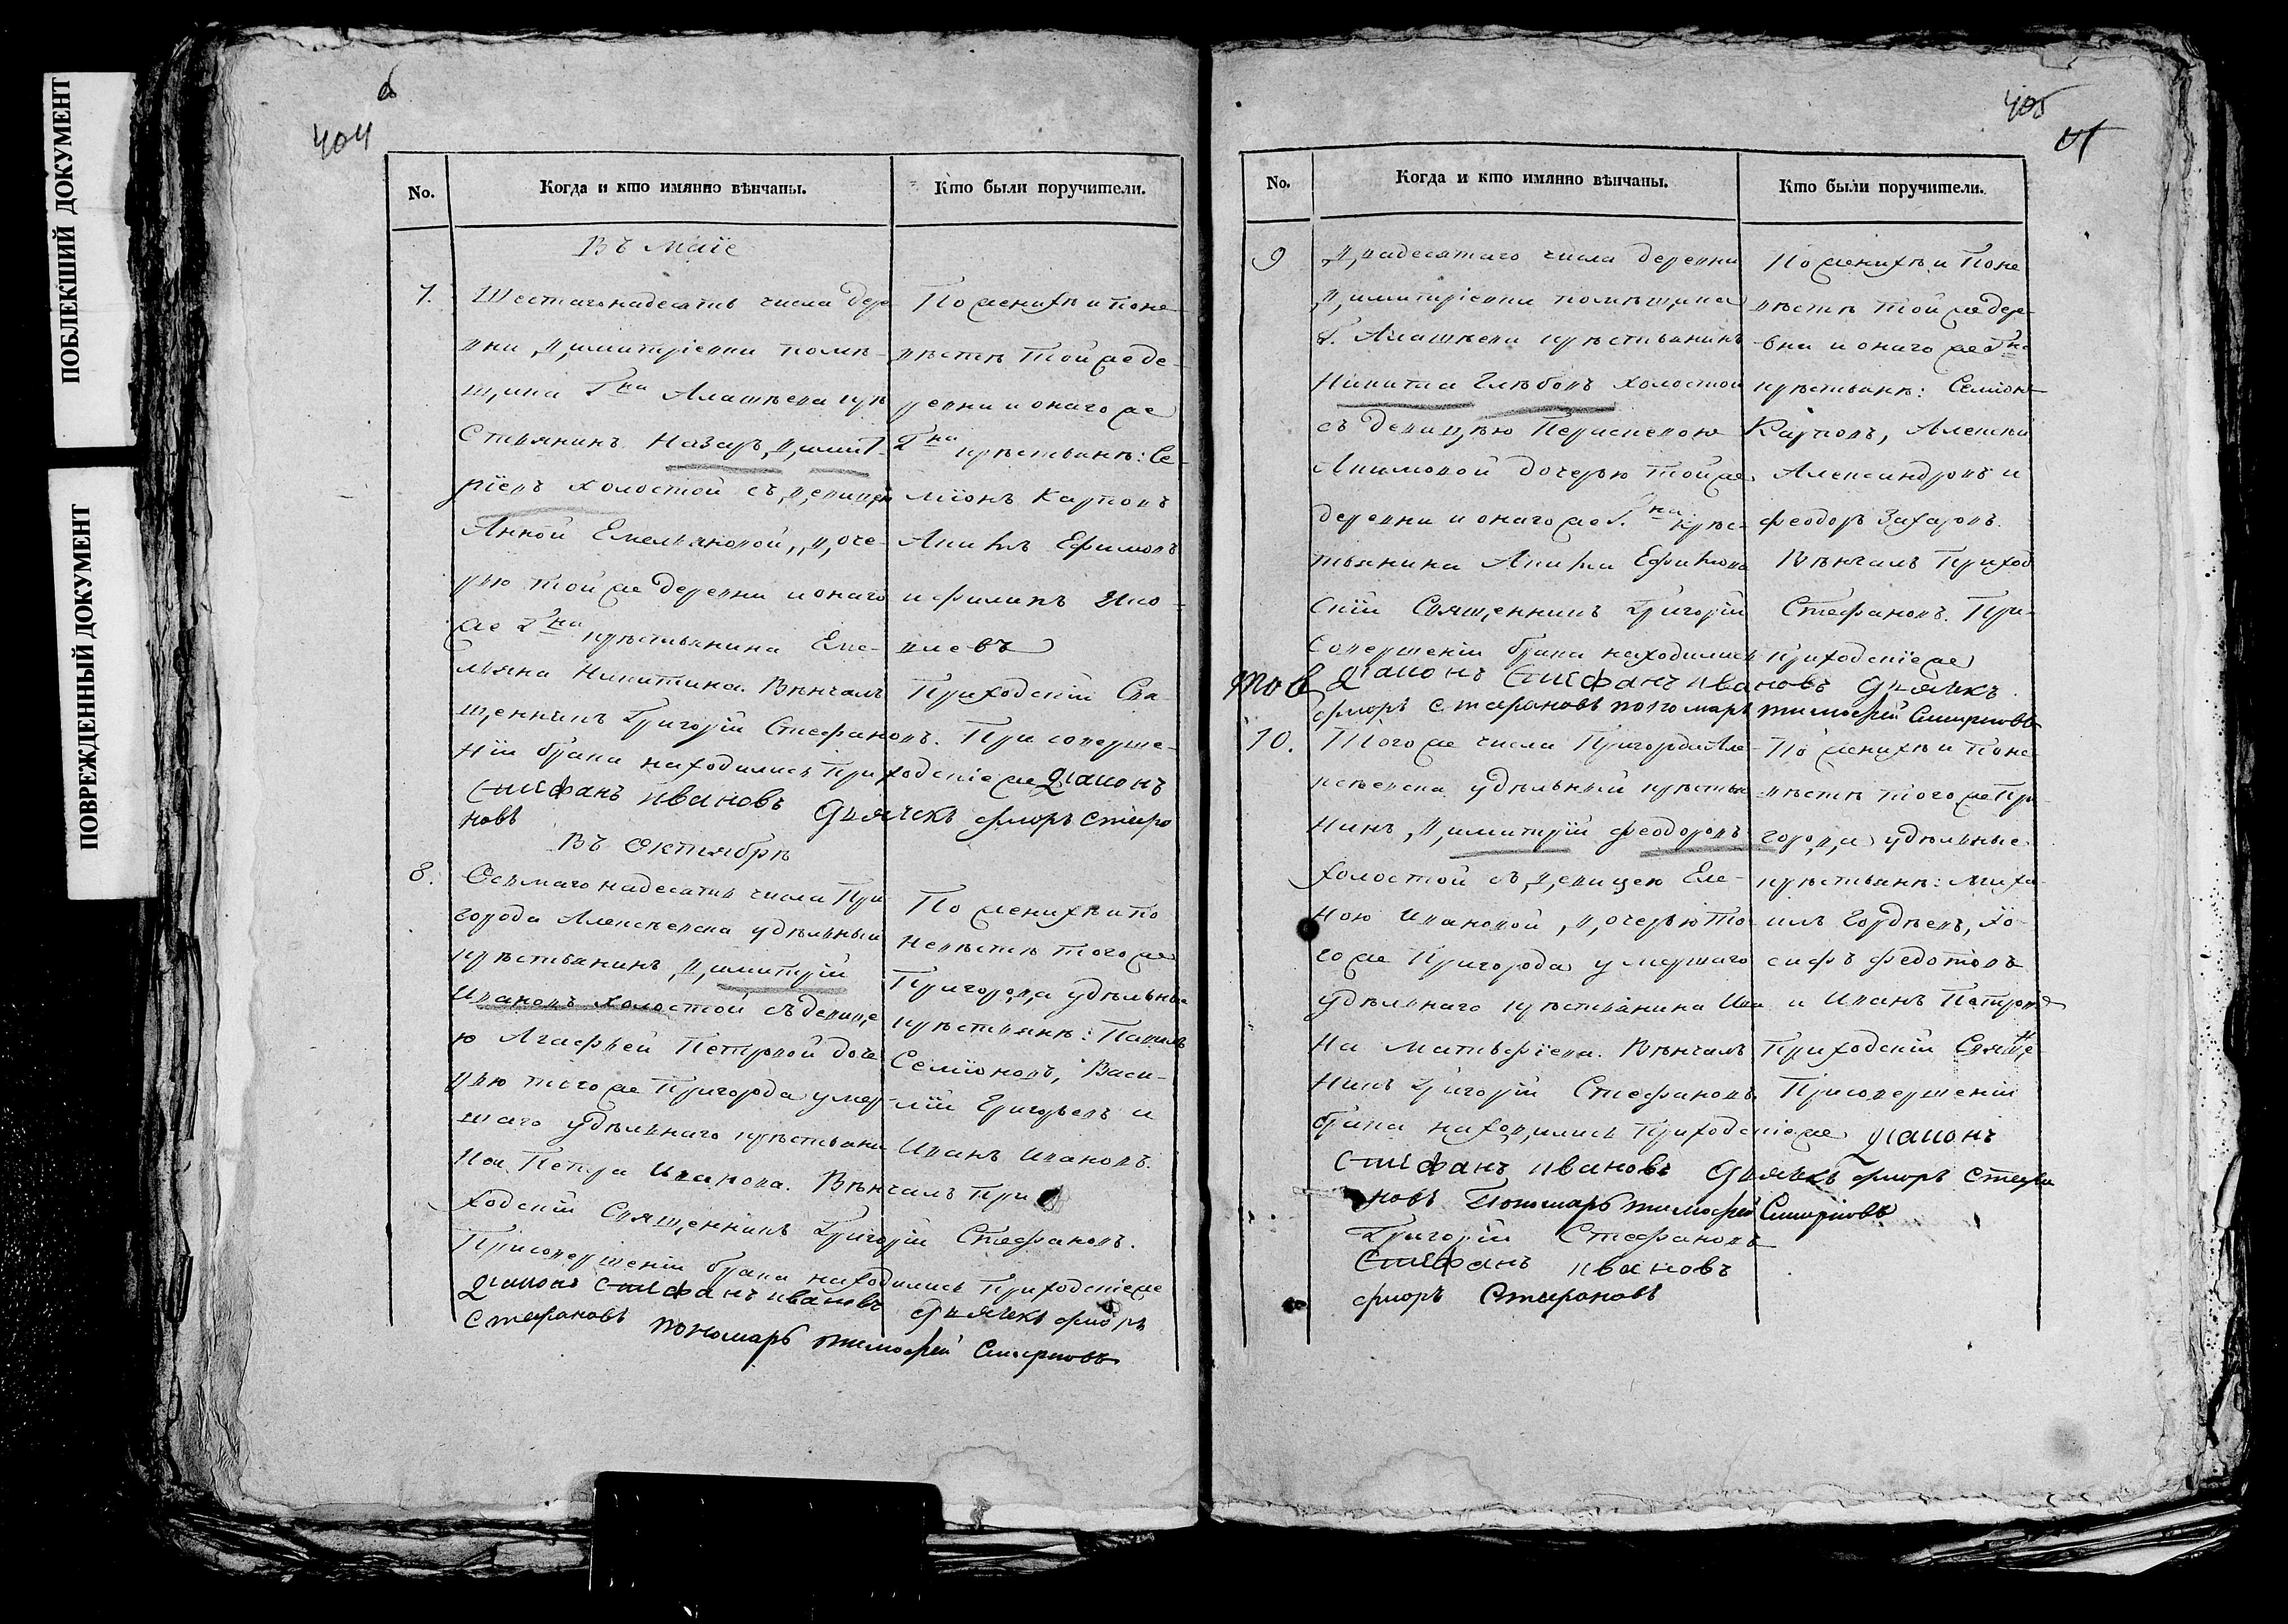 ПОБЛЕКШИЙ ДОКУМЕНТ
ПОВРЕЖДЕННЫЙ ДОКУМЕНТ
404
No.
Когда и кто имянно вѣнчаны.
Кто были поручители.
Въ Маїе
7.
Шестагонадесять числа дер-
вни Димитріевки помѣ-
щика Гна Алашѣева кре
стьянинъ Назаръ Димит-
ріевъ холостой съ девицей
Анной Емельяновой, доче-
рью той же деревни и онаго
же Гна крѣстьянина Еме-
льяна Никитина. Вѣнчалъ Приходскій Свя-
щенникъ Григорій Стефановъ. При соверше-
нїи брака находились Приходскіе же Діаконъ
Стефанъ Ивановъ Дьячекъ Флоръ Стефа
новъ
По женихѣ и по не-
вѣстѣ той же де-
ревни и онаго же
Гна крѣстьянѣ: Се-
мїонъ Карповъ
Акимъ Ефимовъ
и Филипъ Ико-
влевъ
Въ Октябрѣ
8.
Осьмаго надесять числа При
города Алексѣевска удѣльный
крѣстьянинъ Димитрій
Ивановъ холостой съ девице
ю Агафьей Петровой доче
рью того же Пригорода умер-
шаго удѣльнаго крѣстьяни
на Петра Иванова. Вѣнчалъ При
ходскій Священникъ Григорій Стефановъ.
При совершеніи брака находились Приходскіе же
Діаконъ Стефанъ Ивановъ Дьячекъ Флоръ
Стефановъ пономарь Тимофей Смирновъ
По женихѣ и по
невѣстѣ того же
Пригорода удѣльны
крѣстьянѣ: Павилъ
Семїоновъ, Васи-
лїй Григорьевъ и
Иванъ Ивановъ.
405
No.
Когда и кто имянно вѣнчаны.
Кто были поручители.
9
Двадесятаго числа деревни
Димитріевки помѣщика
Г. Алашѣева крѣстьянинъ
Никита Глѣбовъ холостой
съ девицѣю Пераскевою
Акимовой дочерью той же
деревни и онаго же Гна крѣс-
тьянина Акима Ефимова Вѣнчалъ Приход
скїй Священникъ Григорїй Стефановъ. При
совершеніи брака находились приходскіе же
Діаконъ Стефанъ Ивановъ Дьячекъ
Флоръ Стефановъ пономарь Тимофей Смирновъ
По женихѣ и по не
вѣстѣ той же дер-
вни и онаго же Гна
крѣстьянѣ: Семіонъ
Карповъ, Алексѣй
Александровъ и
Феодоръ Захаровъ.
10.
Того же числа Пригорда Але-
ксѣевска удѣльный крѣстья
нинъ Димитрїй Феодоровъ
холостой съ девицею Еле-
ною Ивановой, дочерью то
го же Пригорода умершаго
удѣльнаго крѣстьянина Ива
на Матьфїева. Вѣнчалъ Приходскій Священ
никъ Григорїй Стефановъ При совершеніи
брака находились Приходскіе же Діаконъ
Стефанъ Ивановъ Дьячекъ Флоръ Стефа
новъ Пономарь Тимофей Смирновъ
Григорїй Стефановъ
Стефанъ Ивановъ
Флоръ Стефановъ
По женихѣ и по не
вѣстѣ того же При
города удѣльные
крѣстьянѣ: Миха-
илъ Гордѣевъ, Їо-
сифъ Федотовъ
и Иванъ Петровъ